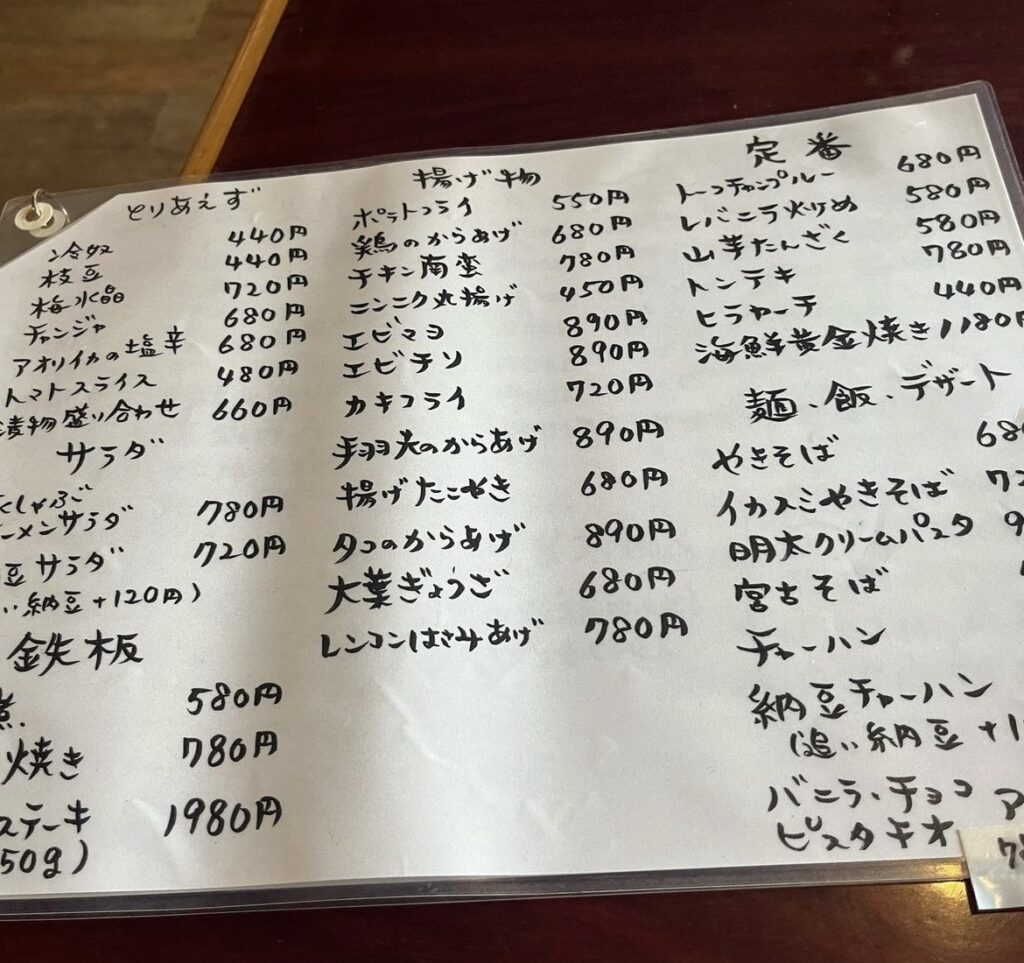 とりあえず
冷奴 440円
枝豆 440円
梅水晶 720円
チャンジャ 680円
アオリイカの塩辛 680円
トマトスライス 480円
漬物盛り合わせ 660円
サラダ
しゃぶ
ーメンサラダ 780円
豆サラダ 720円
い納豆+120円)
鉄板
煮 580円
焼き 780円
ステーキ 1980円
50g)
揚げ物
ポテトフライ 550円
鶏のからあげ 680円
チキン南蛮 780円
ニンニク丸揚げ 450円
エビマヨ 890円
エビチリ 890円
カキフライ 720円
手羽先のからあげ 890円
揚げたこやき 680円
タコのからあげ 890円
大葉ぎょうざ 680円
レンコンはさみあげ 780円
定番
トーフチャンプルー 680円
レバニラ炒め 580円
山芋たんざく 580円
トンテキ 780円
ヒラヤーチ 440円
海鮮黄金焼き 1180円
麺、飯、デザート
やきそば 68
イカスミやきそば 72
明太クリームパスタ 9
宮古そば
チャーハン
納豆チャーハン
(追い納豆+1
バニラ・チョコ
ピスタチオ
ア
78